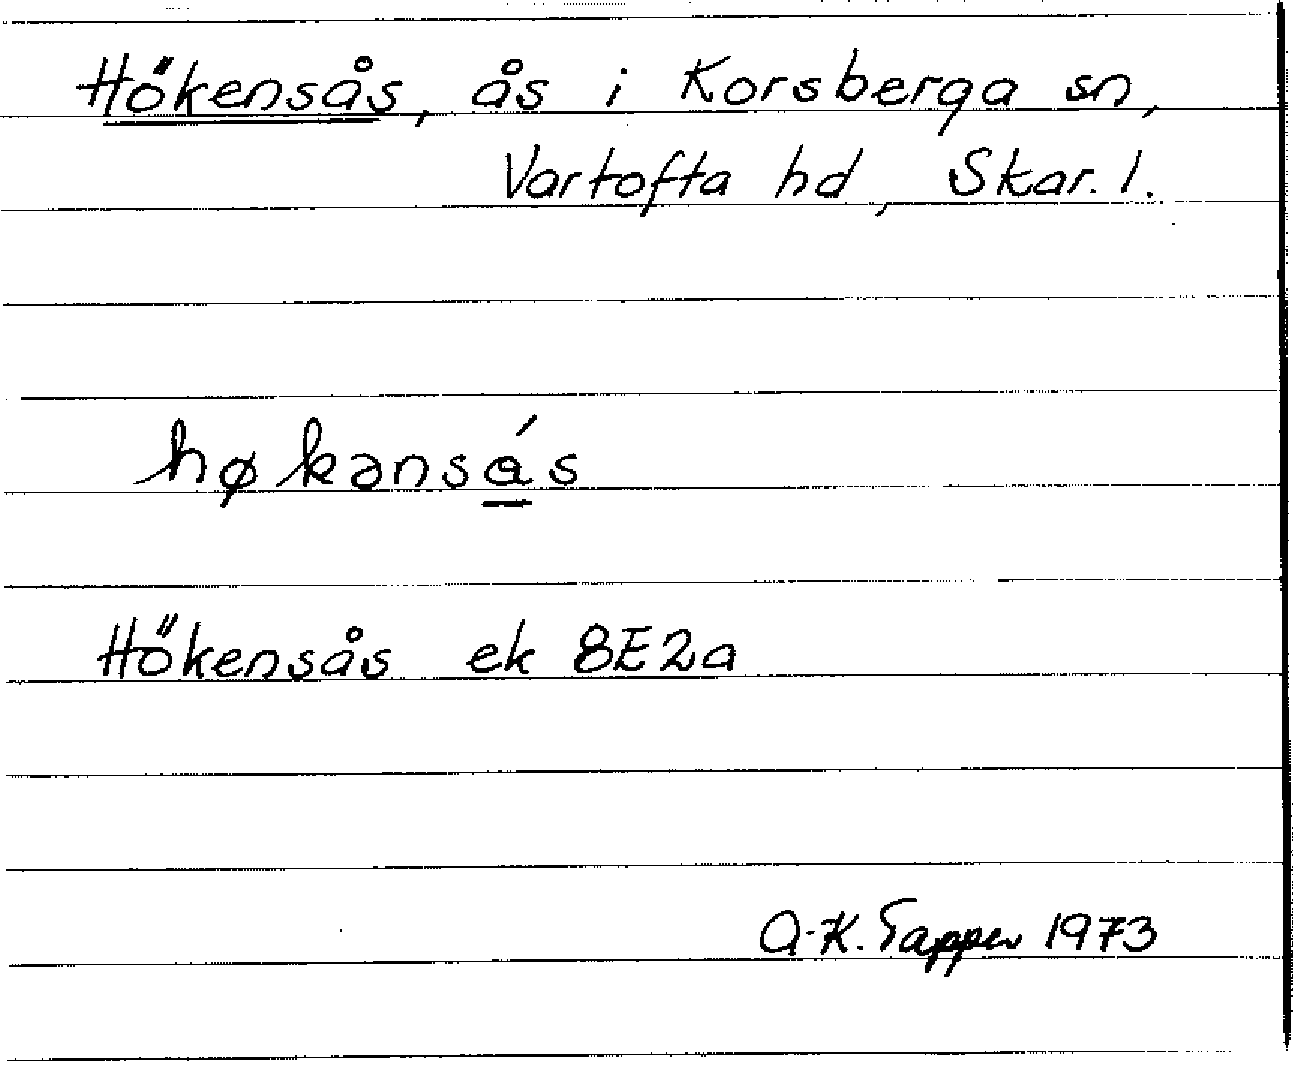 Hökensås, ås i Korsberga sn,
Vartofta hd, Skar. l.
høkənsá̲s
Hökensås ek 8E2a
A-K. Tapper 1973